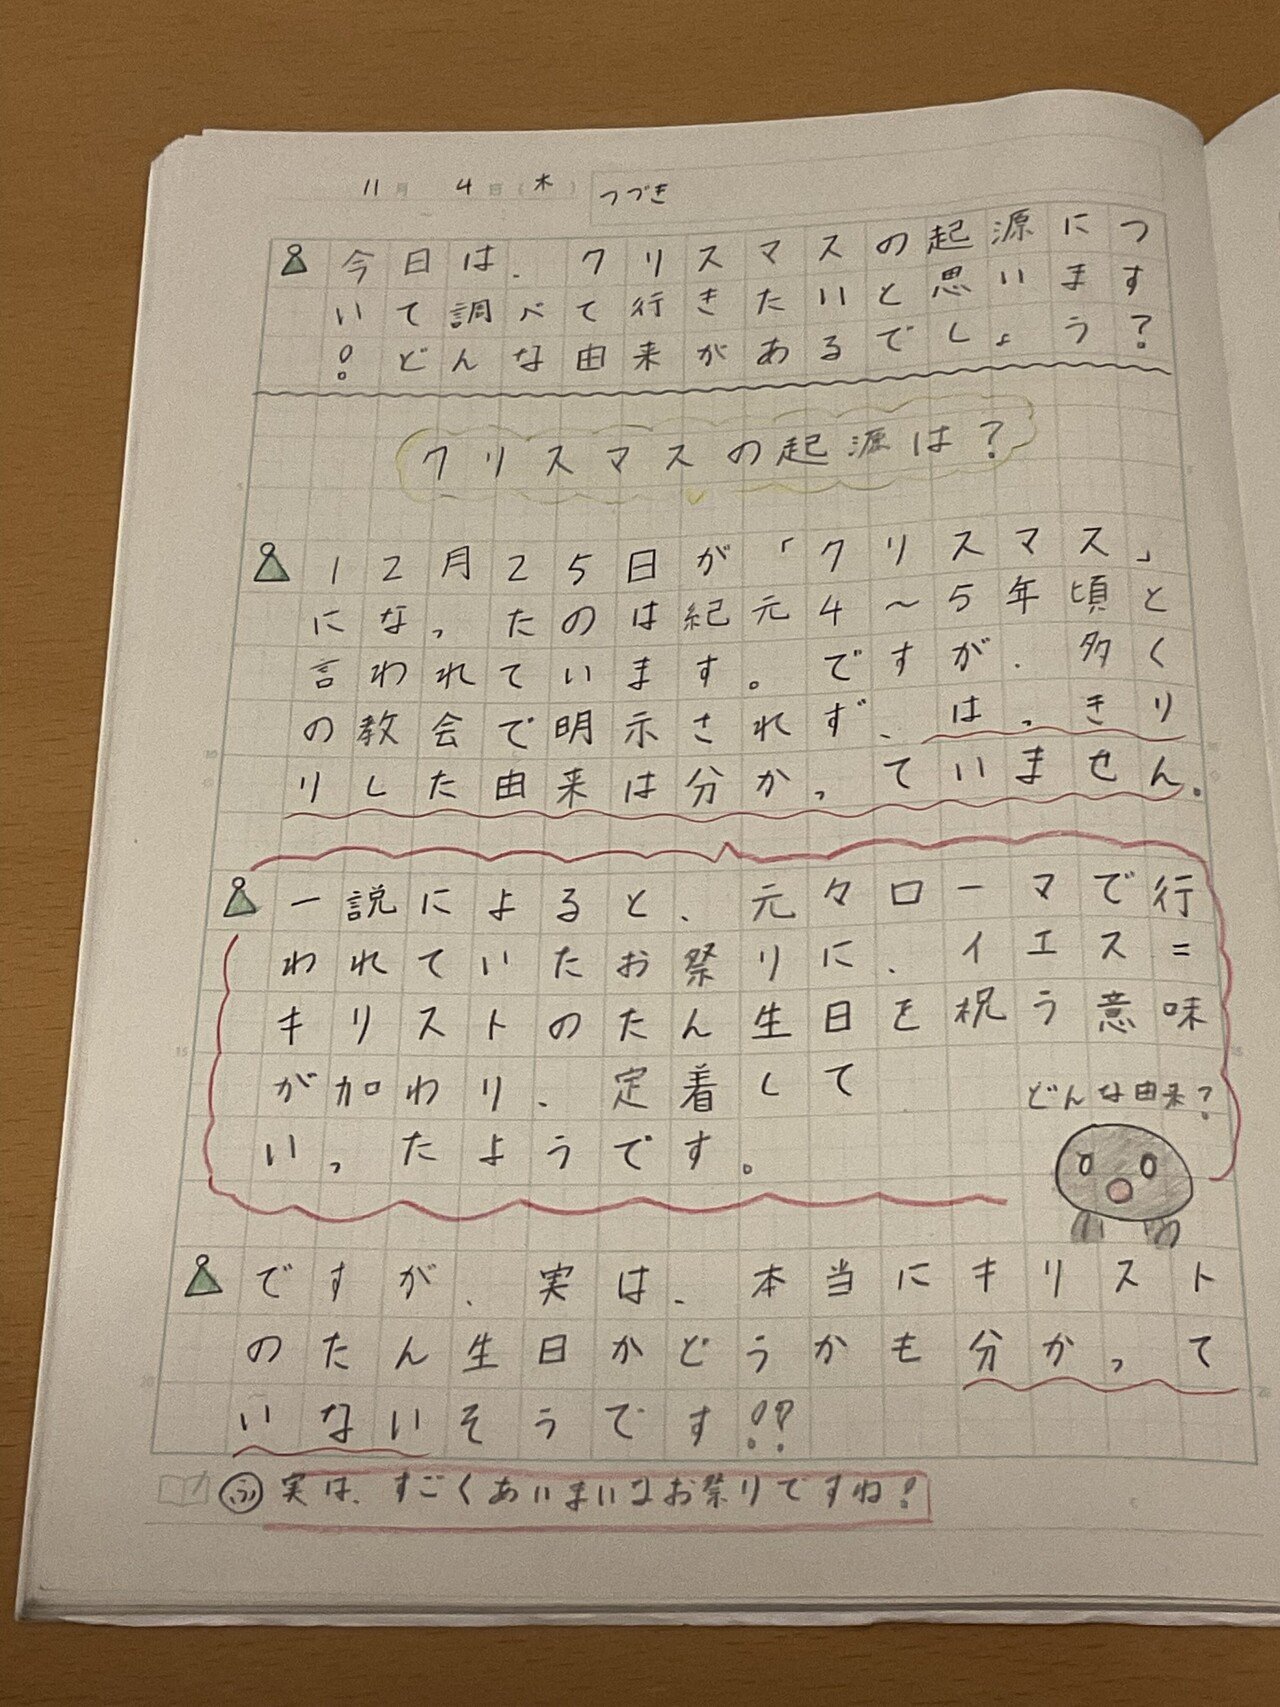 11月 4日(木) つづき
今日は、クリスマスの起源につ
いて調べて行きたいと思います
!どんな由来があるでしょう?
クリスマスの起源は?
12月25日が「クリスマス」
になったのは紀元4〜5年頃と
言われています。ですが、多く
の教会で明示されず、はっきり
りした由来は分かっていません。
一説によると、元々ローマで行
われていたお祭りに、イエス=
キリストのたん生日を祝う意味
が加わり、定着して
いったようです。
どんな由来?
ですが、実は、本当にキリスト
のたん生日かどうかも分かって
いないそうです!?
ふ 実は、すごくあいまいなお祭りですね!